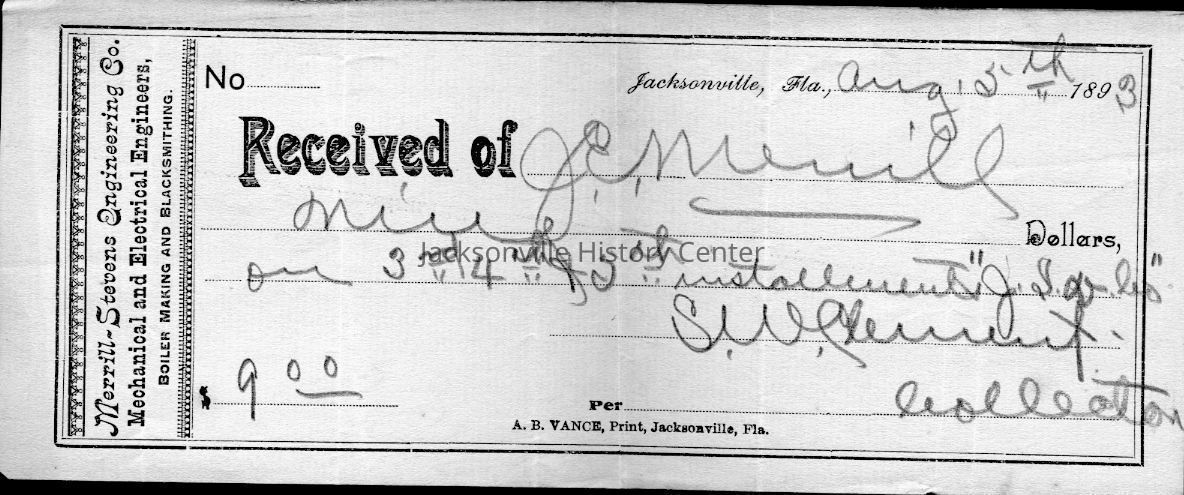 Merrill-Stevens Engineering Co.
Mechanical and Electrical Engineers,
BOILER MAKING AND BLACKSMITHING.
No
Jacksonville, Fla., Aug. 5th 1893
Received of J.E. Merrill
nine Dollars,
Jacksonville History Center
on 3rd 4th & 5th installments "J. S. & Co"
S. W. Clement.
$ 9 00
Per Collector
A. B. VANCE, Print, Jacksonville, Fla.